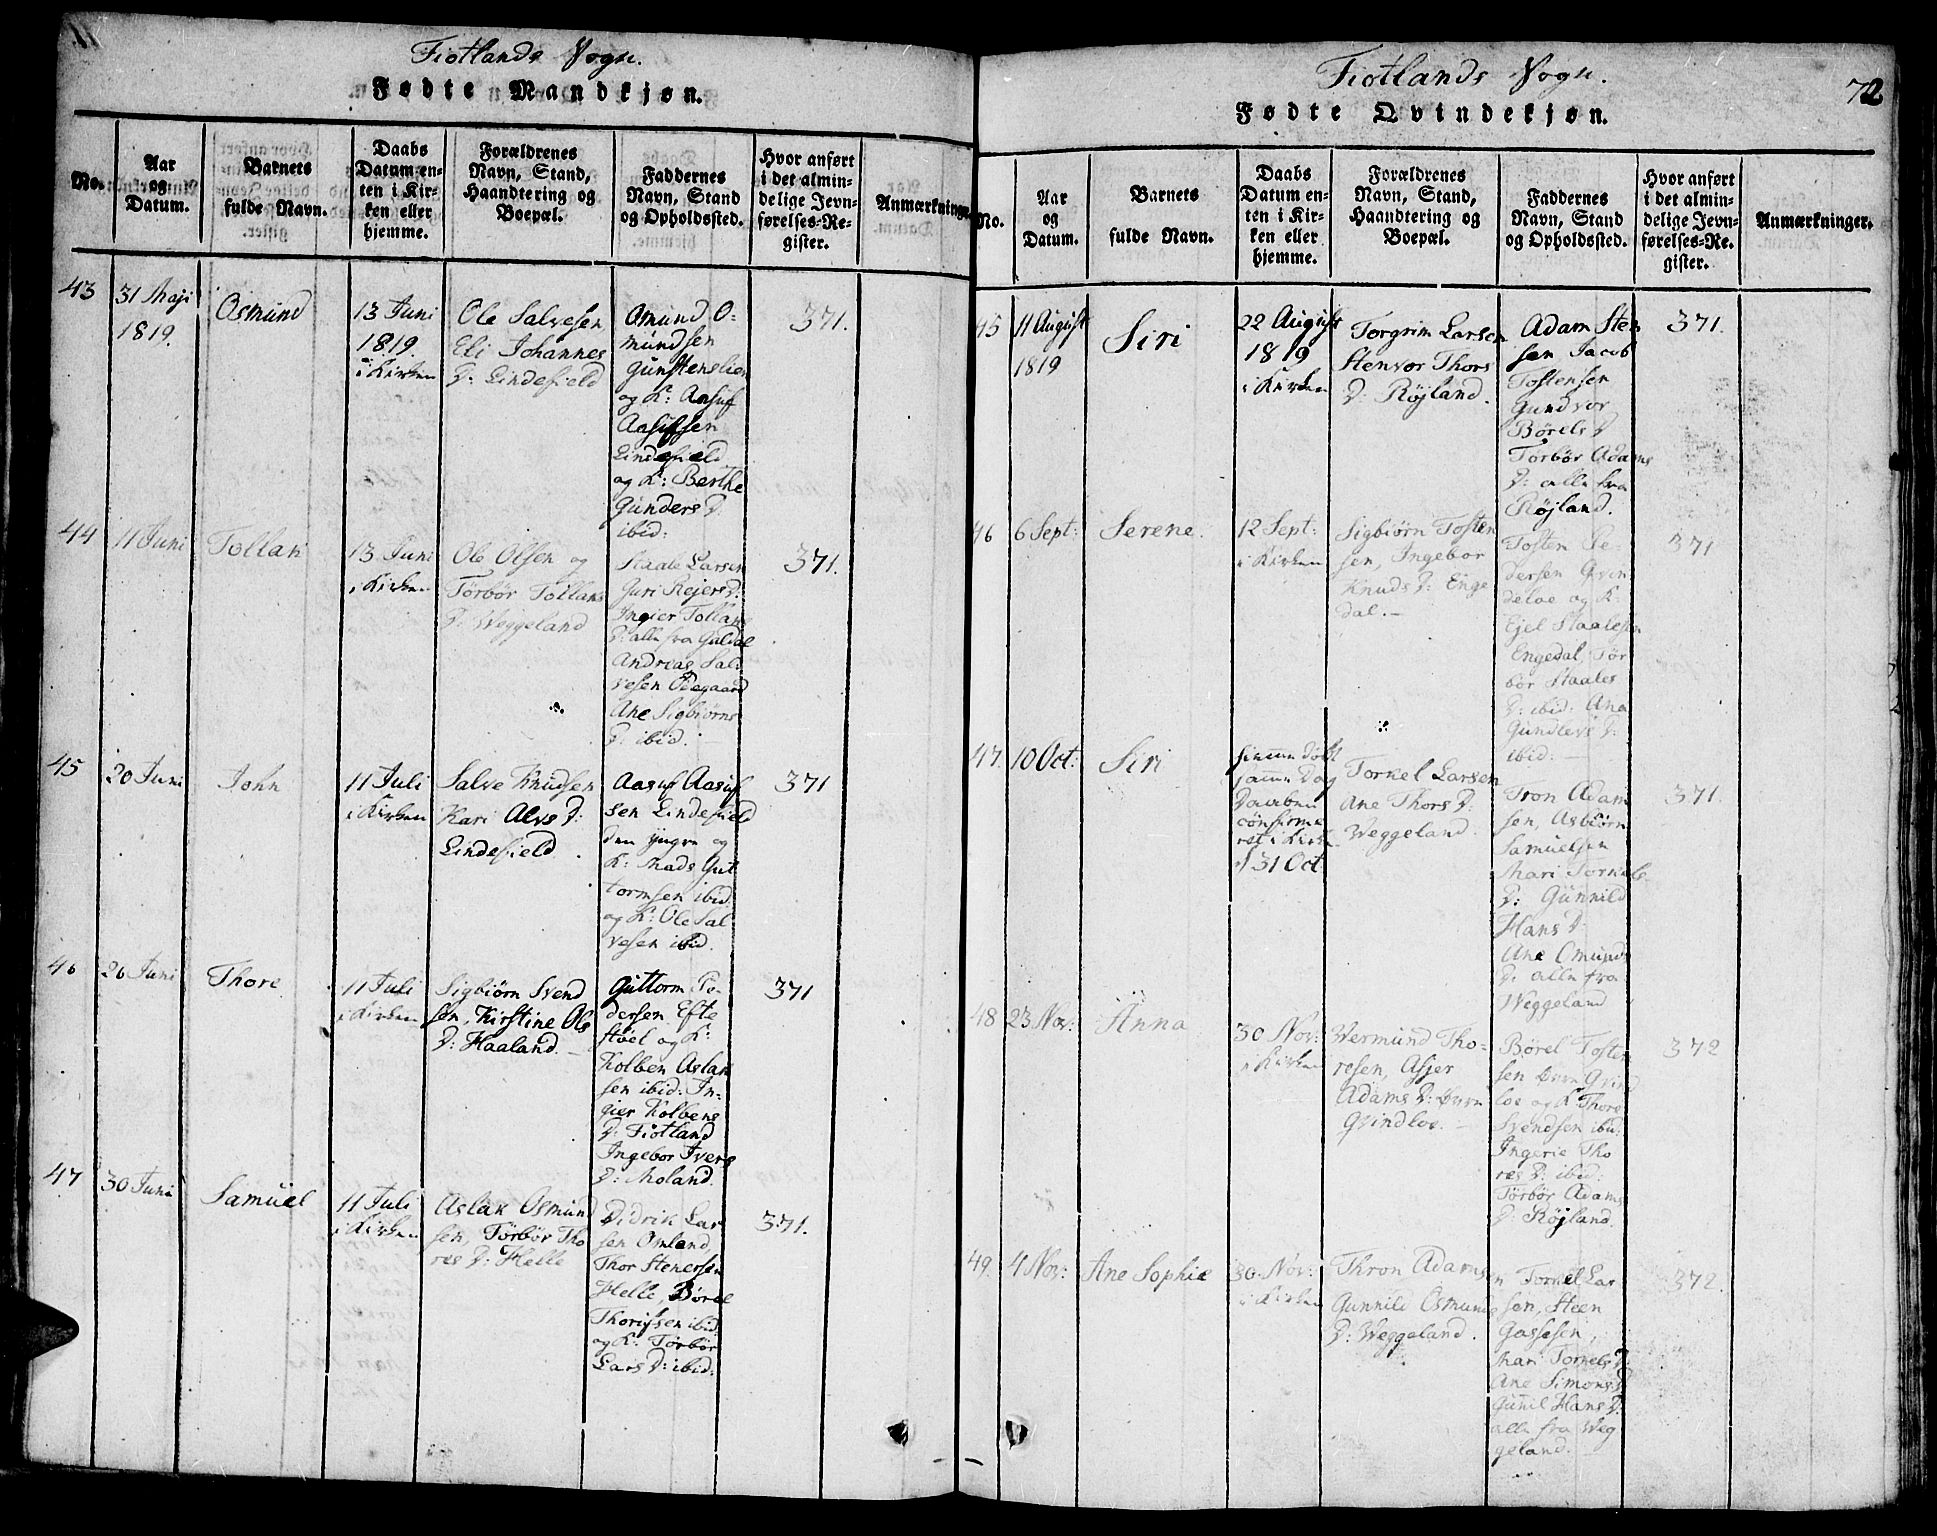 Fiotlands Sogn.
Fødte Mandkjøn.
No.
Aar
og
Datum.
Barnets
fulde Navn.
Daabs
Datum en-
ten i Kir-
ken eller
hjemme.
Forældrenes
Navn, Stand,
Haandtering og
Boepæl.
Faddernes
Navn, Stand
og Opholdssted.
Hvor anført
i det almin-
delige Jevn-
førelses-Re-
gister.
Anmærkninger.
43
31 Maji
1819.
Osmund
13 Juni
1819.
i Kirken
Ole Salvesen
Eli Johannes
D: Lindefield
Omund O-
mundsen
Gunstenslien
og K: Aasuf
Aasufsen
Lindefield
og K: Berthe
Gunders D
ibid:
371.
44
11 Juni
Tollan
13 Juni
i Kirken
Ole Olsen og
Torbor Tollans
D: Weggeland
Staale Larsen
Guri Rejers D:
Ingier Tollans
D: alle fra Galdal
Andreas Sal-
vesen Ödegaard
Ane Sigbiørns
D: ibid.
371.
45
20 Juni
John
11 Juli
i Kirken
Salve Knudsen
Kari Alvs D:
Lindefield.
Aasuf Aasuf
sen Lindefield
den yngre og
K: Mads Gut
tormsen ibid.
og K: Ole Sal-
vesen ibid.
371
46
26 Juni
Thore
11 Juli
i Kirken
Sigbiørn Svend
sen, Kirstine Ols
D: Haaland.
Guttorm Pe-
dersen Efte
støel og K:
Kolben Aslak
sen ibid: In-
gier Kolbens
D: Fiotland
Ingebor Ivers
D: Moland.
371
47
30 Juni
Samuel
11 Juli
i Kirken
Aslak Osmund
sen, Torbor Tho
res D: Helle
Didrik Lar
sen Omland,
Thor Stenersen
Helle, Børel
Thorissen ibid.
og K: Torbor
Lars D: ibid:
371.
Fiotlands Sogn.
72
Fødte Qvindekjøn.
No.
Aar
og
Datum.
Barnets
fulde Navn.
Daabs
Datum en-
ten i Kir-
ken eller
hjemme.
Forældrenes
Navn, Stand,
Haandtering og
Boepæl.
Faddernes
Navn, Stand
og Opholdssted.
Hvor anført
i det almin-
delige Jevn-
førelses-Re-
gister.
Anmærkninger.
45
11 August
1819
Siri
22 August
1819
i Kirken
Torgrim Larsen
Stenvor Thors
D: Röjland.
Adam Sten
sen Jacob
Tostensen
Gundvor
Børels D
Torbor Adams
D: alle fra
Röjland.
371.
46
6 Sept:
Serene.
12 Sept:
i Kirken
Sigbiørn Tosten
sen, Ingebor
Knuds D: Enge
dal.
Tosten Pe-
dersen Qvin
deloe og K:
Ejel Staalesen
Engedal, Tor
bor Staales
D: ibid: Ana
Gundlevs D:
ibid:
371
47.
10 Oct:
Siri
hjemme døbt
samme Dag
Daaben
confirme
ret i Kirken
d 31 Oct
Torkel Larsen
Ane Thors D:
Weggeland.
Tron Adam
sen, Asbiørn
Samuelsen
Mari Torkels
D: Gunnild
Hans D:
Ane Omunds
D: alle fra
Weggeland
371.
48
23 Nov:
Anna
30 Nov:
i Kirken
Wermund Tho-
resen, Asjer
Adams D: Øvre
Qvindloe.
Børel Tosten
sen Øvre Qvind
loe og K Thore
Svendsen ibid:
Ingerie Tho
res D: ibid:
Torbor Adams
D: Röjland.
372
49.
4 Nov:
Ane Sophie
30 Nov:
i Kirken
Thron Adamsen
Gunnild Osmunds
D: Weggeland.
Torkel Lar
sen, Steen
Gassesen,
Mari Torkels D:
Ane Simons D
Gunil Hans D.
alle fra Weg
geland.
372.